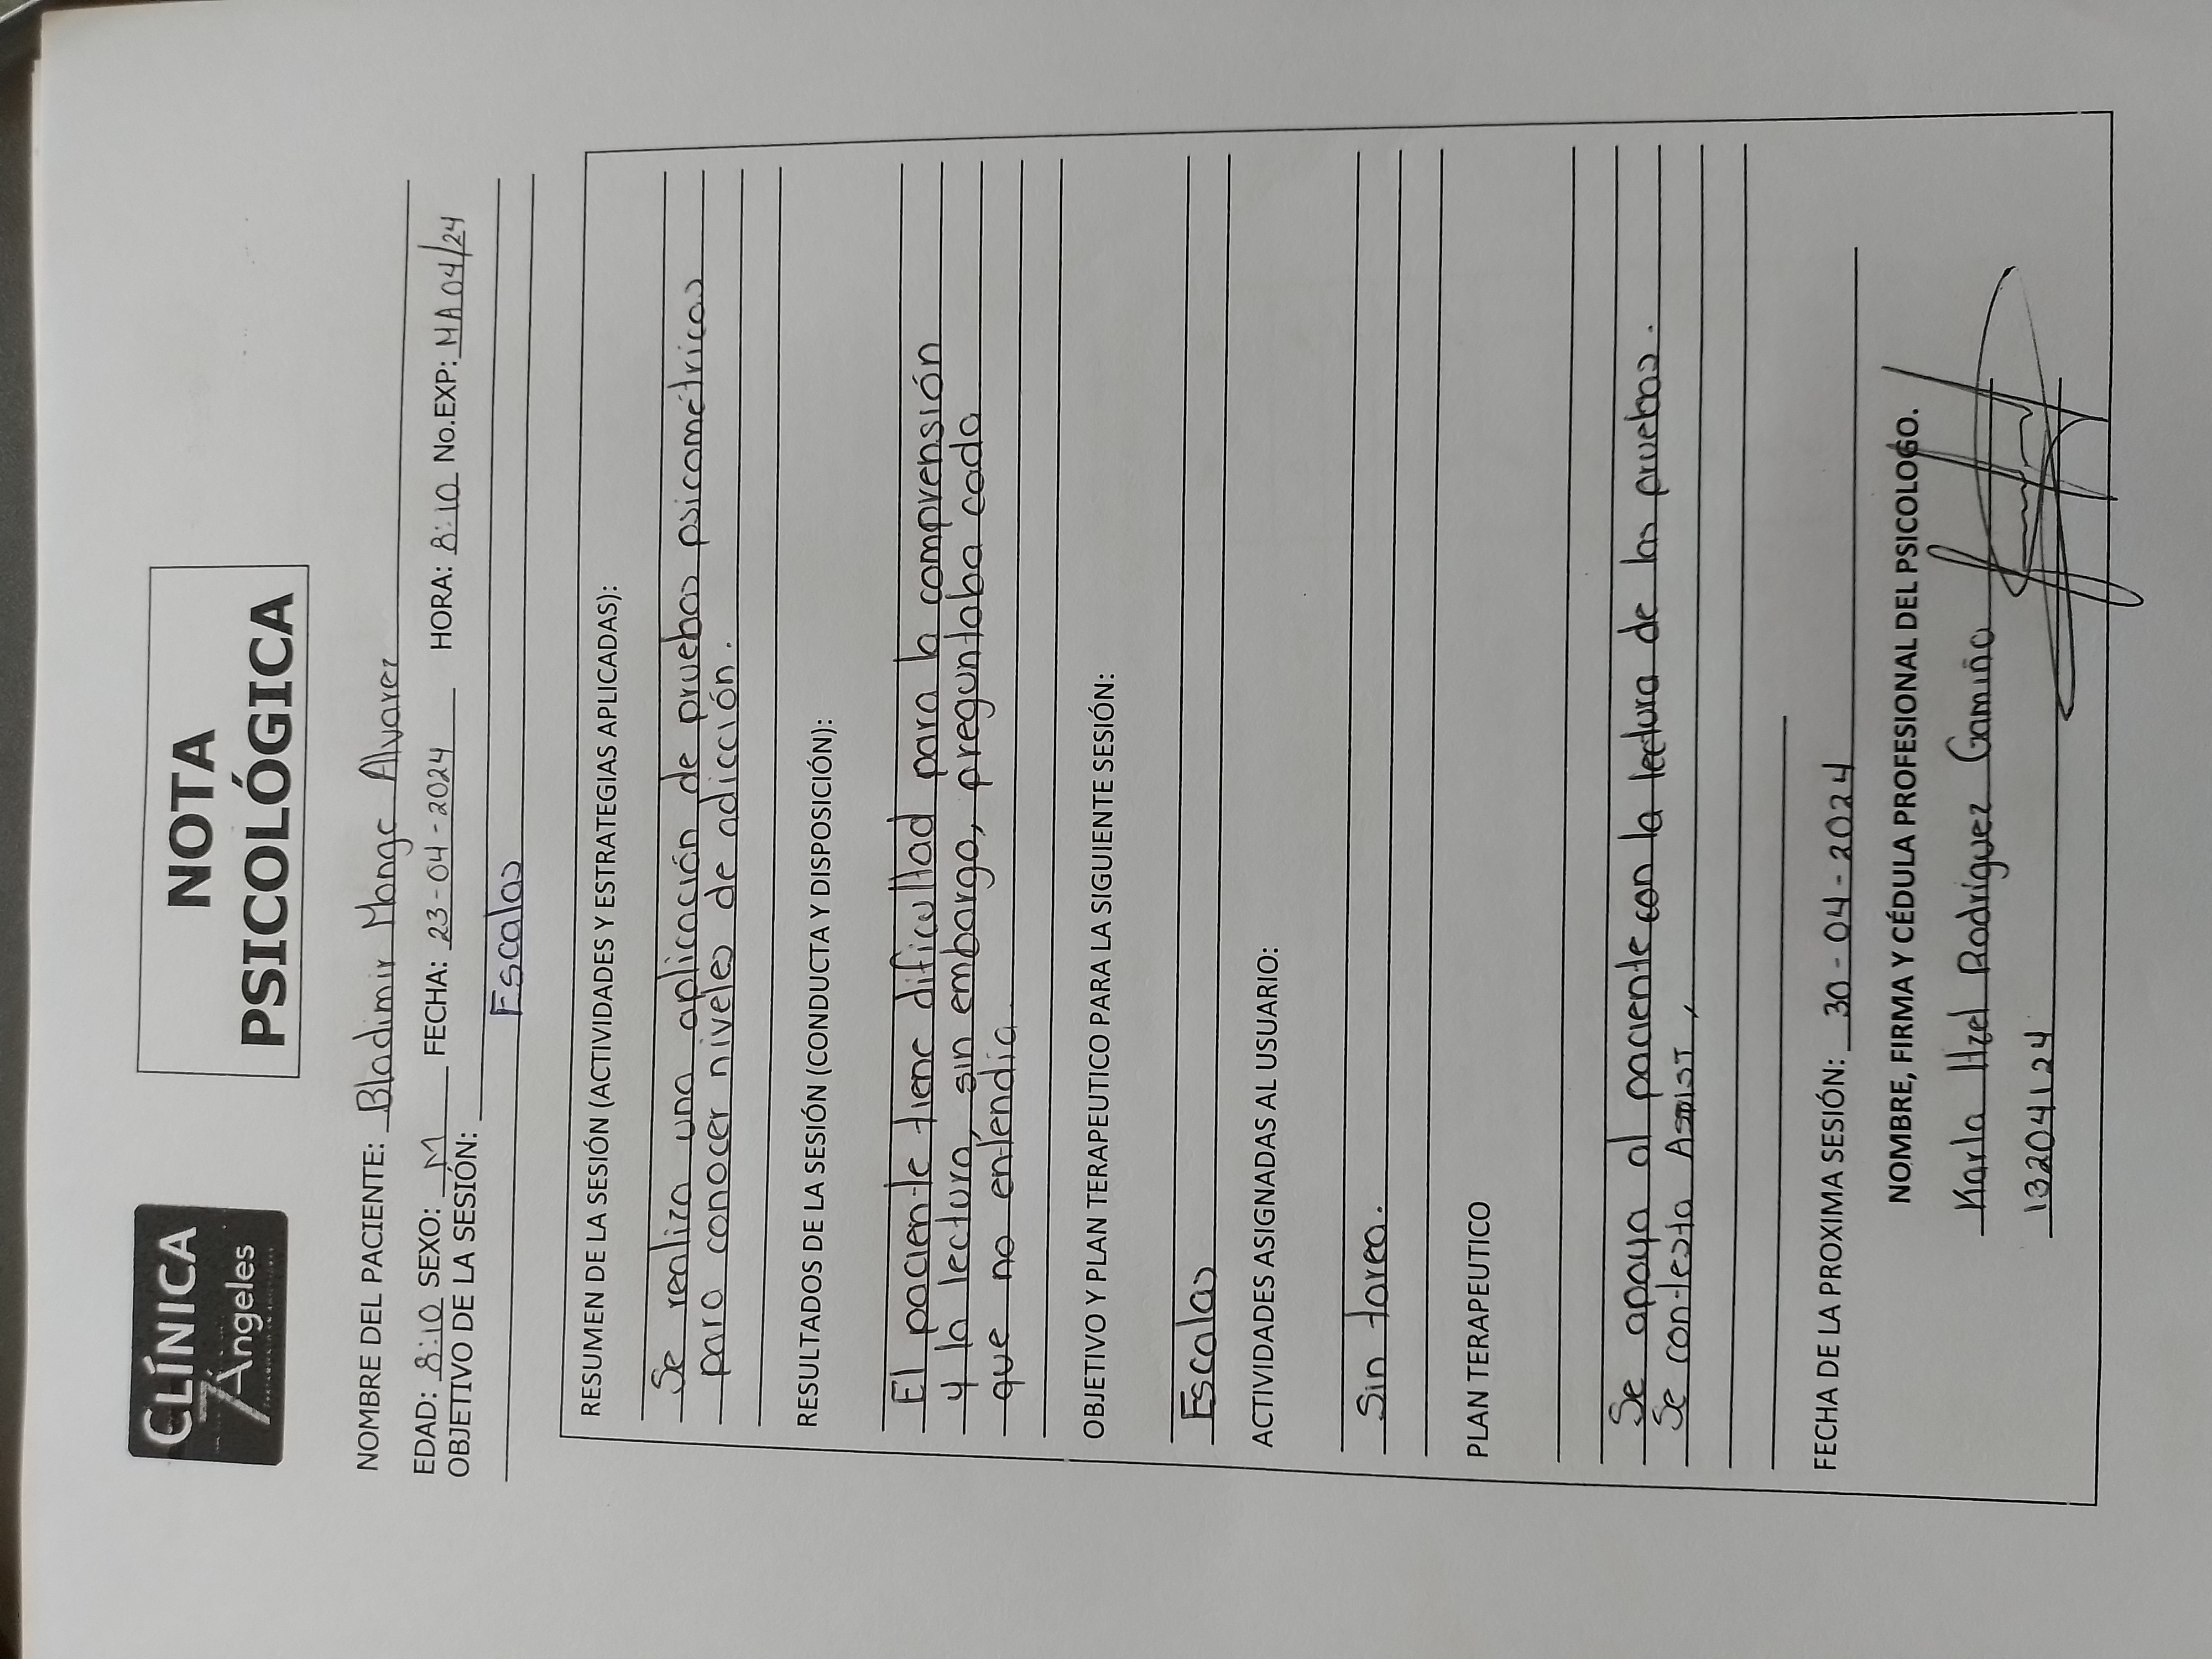 CLÍNICA
7 Ángeles
NOTA
PSICOLÓGICA
NOMBRE DEL PACIENTE: Bladimir Monge Alvarez
EDAD: 8:10 SEXO: M FECHA: 23-04-2024 HORA: 8:10 No.EXP: MA04/24
OBJETIVO DE LA SESIÓN:
Escalas
RESUMEN DE LA SESIÓN (ACTIVIDADES Y ESTRATEGIAS APLICADAS):
Se realiza una aplicación de pruebas psicométricas
para conocer niveles de adicción.
RESULTADOS DE LA SESIÓN (CONDUCTA Y DISPOSICIÓN):
El paciente tiene dificultad para la comprensión
y la lectura, sin embargo, preguntaba cada
que no entendia
OBJETIVO Y PLAN TERAPEUTICO PARA LA SIGUIENTE SESIÓN:
Escalas
ACTIVIDADES ASIGNADAS AL USUARIO:
Sin tarea.
PLAN TERAPEUTICO
Se apoya al paciente con la lectura de las pruebas.
Se contesta Assist,
FECHA DE LA PROXIMA SESIÓN: 30-04-2024
NOMBRE, FIRMA Y CÉDULA PROFESIONAL DEL PSICOLOGO.
Karla Itzel Rodríguez Gamiño
13204124